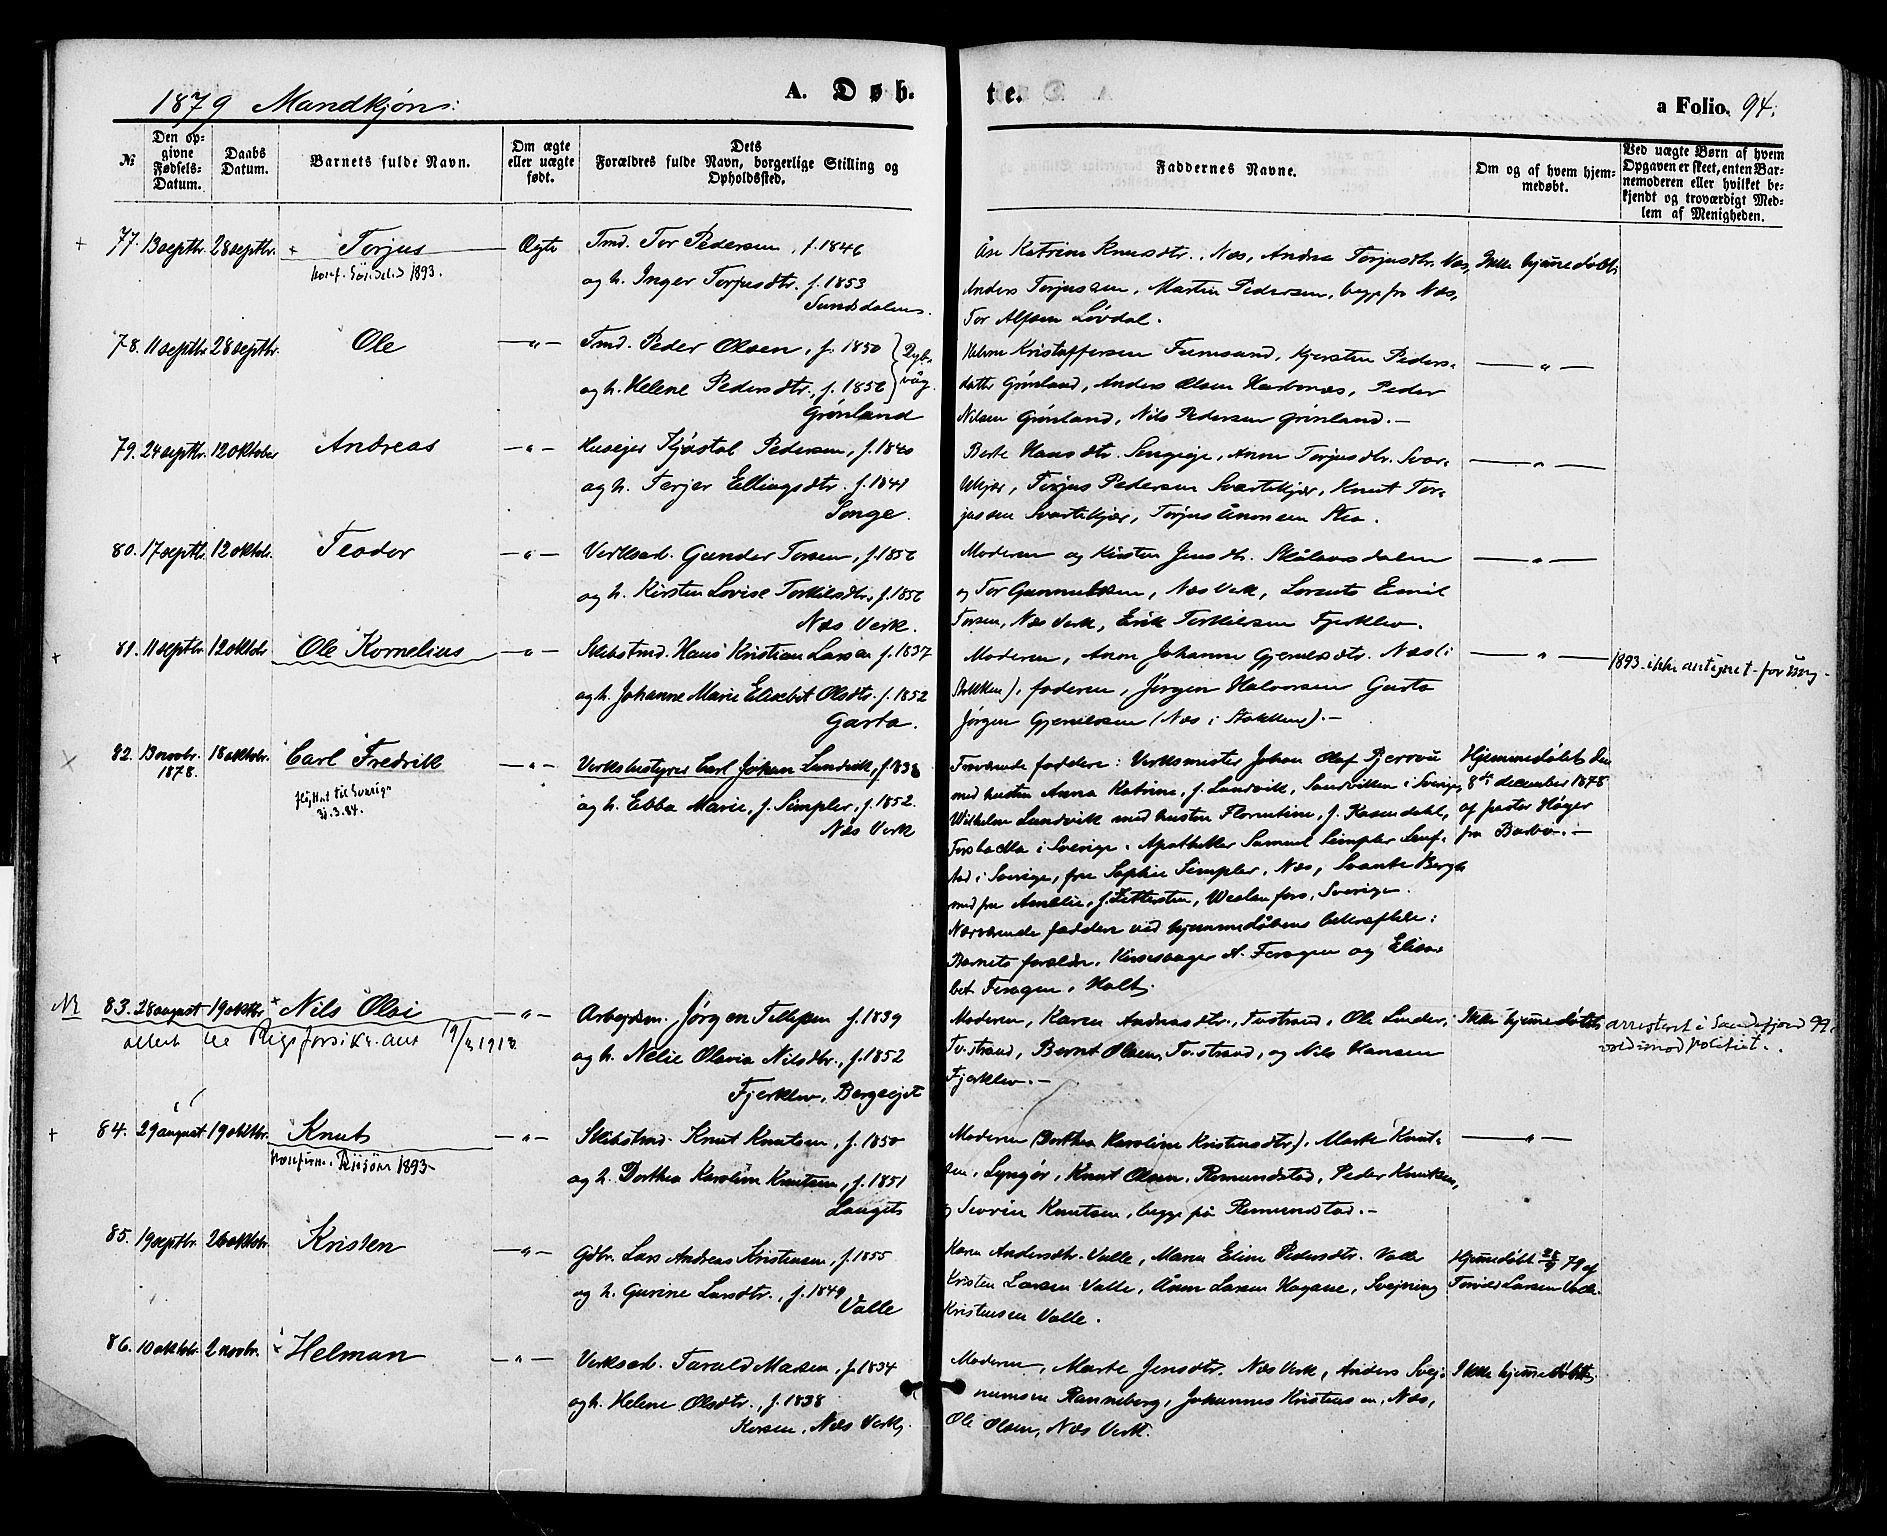 1879 Mandkjøn:
A. Døb-
te.
a Folio. 94.
№
Den op-
givne
Fødsels-
Datum.
Daabs
Datum.
Barnets fulde Navn.
Om ægte
eller uægte
født.
Dets
Forældres fulde Navn, borgerlige Stilling og
Opholdssted.
Faddernes Navne.
Om og af hvem hjem-
medøbt.
Ved uægte Børn af hvem
Opgaven er skeet, enten Bar-
nemoderen eller hvilket be-
kjendt og troværdigt Med-
lem af Menigheden.
+ 77. 13 septbr. 28 septbr. + Torjus Ægte
konf. Söndeled 1893.
Tmd. Tor Pedersen, f. 1846
og h. Inger Torjusdtr. f. 1853
Sundsdalen.
Åse Katrine Knusdtr., Næs, Andrea Torjusdtr. Næs,
Anders Torjussen, Martin Pedersen, begge fra Næs,
Tor Alfsen Løvdal.
Ikke hjemmedøbt.
78. 11 septbr. 28 septbr. Ole —"—
Tmd. Peder Olsen, f. 1850
og h. Helene Pedersdtr., f. 1856
Dyb-
våg.
Grønland
Kristoffersen Furmsand, Kjersten Peders-
datter Grønland, Anders Olsen, Peder
Nilsen Grønland, Nils Pedersen Grønland.—
—"—
79. 24 septbr. 12 oktober Andreas —"—
Huseier Kjøstol Pedersen, f. 1840
og h. Terjer Ellingsdtr. f. 1841
Songe.
Berte Hansdtr. Sengeje, Anne Torjusdtr. Svar-
tekjær, Torjus Pedersen Svartekjær, Knut Tor-
jussen Svartekjær, Torjus Anonsen Stea.
—"—
80. 17 septbr. 12 oktbr. Teodor —"—
Verksarb. Gunder Torsen, f. 1856
og h. Kirsten Lovise Torkilsdtr., f. 1856
Næs Verk.
Moderen og Kirsten Jensdtr. Skålandsdalen
og Tor Gunnulsen, Næs Verk, Lorents Emil
Torsen, Næs Verk, Erik Terkilsen Fjerklev.
—"—
+ 81. 11 septbr. 12 oktbr. Ole Kornelius —"—
Skibstmd. Hans Kristian Larsen f. 1837
og h. Johanne Marie Elisebet Olsdtr. f. 1852
Garta.
Moderen, Anne Johanne Gjerulsdtr. Næs (i
Stokken), faderen, Jørgen Halvorsen Garta
Jørgen Gjerulsen (Næs i Stokken).—
—"—
1893. ikke antegnet - for ung -
× 82. 13 novbr. 18 oktobr. Carl Fredrik —"—
1878.
flyttet til Sverige
31.3.84.
Verksbestyrer Carl Johan Lundvik, f. 1838
og h. Ebba Marie, f. Simpler, f. 1852.
Næs Verk
Fraværende faddere: Verksmester Johan Olaf
med hustru Anna Katrine, f. Lundvik, Sandviken i Sverige,
Wilhelm Lundvik med hustru Florentine, f. Rosendahl,
Forsbacka i Sverige. Apotheker Samuel Simpler
i Sverige, fru Sophie Simpler, Næs, Svante Bergh
med fru Amelie, f. Zettersten, Weslanfors, Sverige.
Nærværende faddere ved hjemmedåbens bekræftelse:
Barnets forældre, Kirkesanger A. Feragen og Elisa-
bet Feragen, Holt.
Hjemmedøbt den
8de december 1878
af pastor Høyer
fra Barbo.—
NB 83. 28 august 19 oktbr. + Nils Olai —"—
attest til Rigsforsikr. anst 19/3 1913
Arbejdsm. Jørgen Tellefsen f. 1839
og h. Nelie Olavia Nilsdtr., f. 1852
Fjerklev, Bergsejet
Moderen, Karen Andreasdtr., Tvitstrand, Ole Linder,
Tvitstrand, Bernt Olsen, Tvitstrand, og Nils Hansen
Fjerklev.—
Ikke hjemmedøbt.
arresteret i Sandefjord 99.
vold imod Politiet.
+ 84. 29 august 19 oktbr. Knut —"—
konfirm. Risør 1893—
Skibstmd. Knut Knutsen, f. 1850
og h. Dorthea Karoline Knutsen, f. 1851
Langets
Moderen (Dorthea Karoline Kristensdtr.), Marte Knut-
sen, Lyngør, Knut Olsen, Romundstad, Peder Knutsen,
og Severin Knutsen, begge på Romundstad.—
—"—
85. 19 septbr. 26 oktobr. Kristen —"—
Gdbr. Lars Andreas Kristensen, f. 1855
og h. Gurine Larsdtr., f. 1849
Valle
Karen Andersdtr. Valle, Maren Eline Pedersdtr. Valle
Kristen Larsen Valle, Åsen Larsen Hagane, Svejning
Kristensen Valle.
Hjemmedøbt 28/9 79 af
Torvild Larsen Valle.
86. 10 oktobr. 2 novbr. × Helman —"—
Verksarb. Tarald Masen, f. 1834
og h. Helene Olsdtr., f. 1838
Korsen, Næs Verk.
Moderen, Marte Jensdtr. Næs Verk, Anders Svej-
numsen Ranneberg, Johannes Kristensen, Næs,
Ole Olsen, Næs Verk.
Ikke hjemmedøbt.